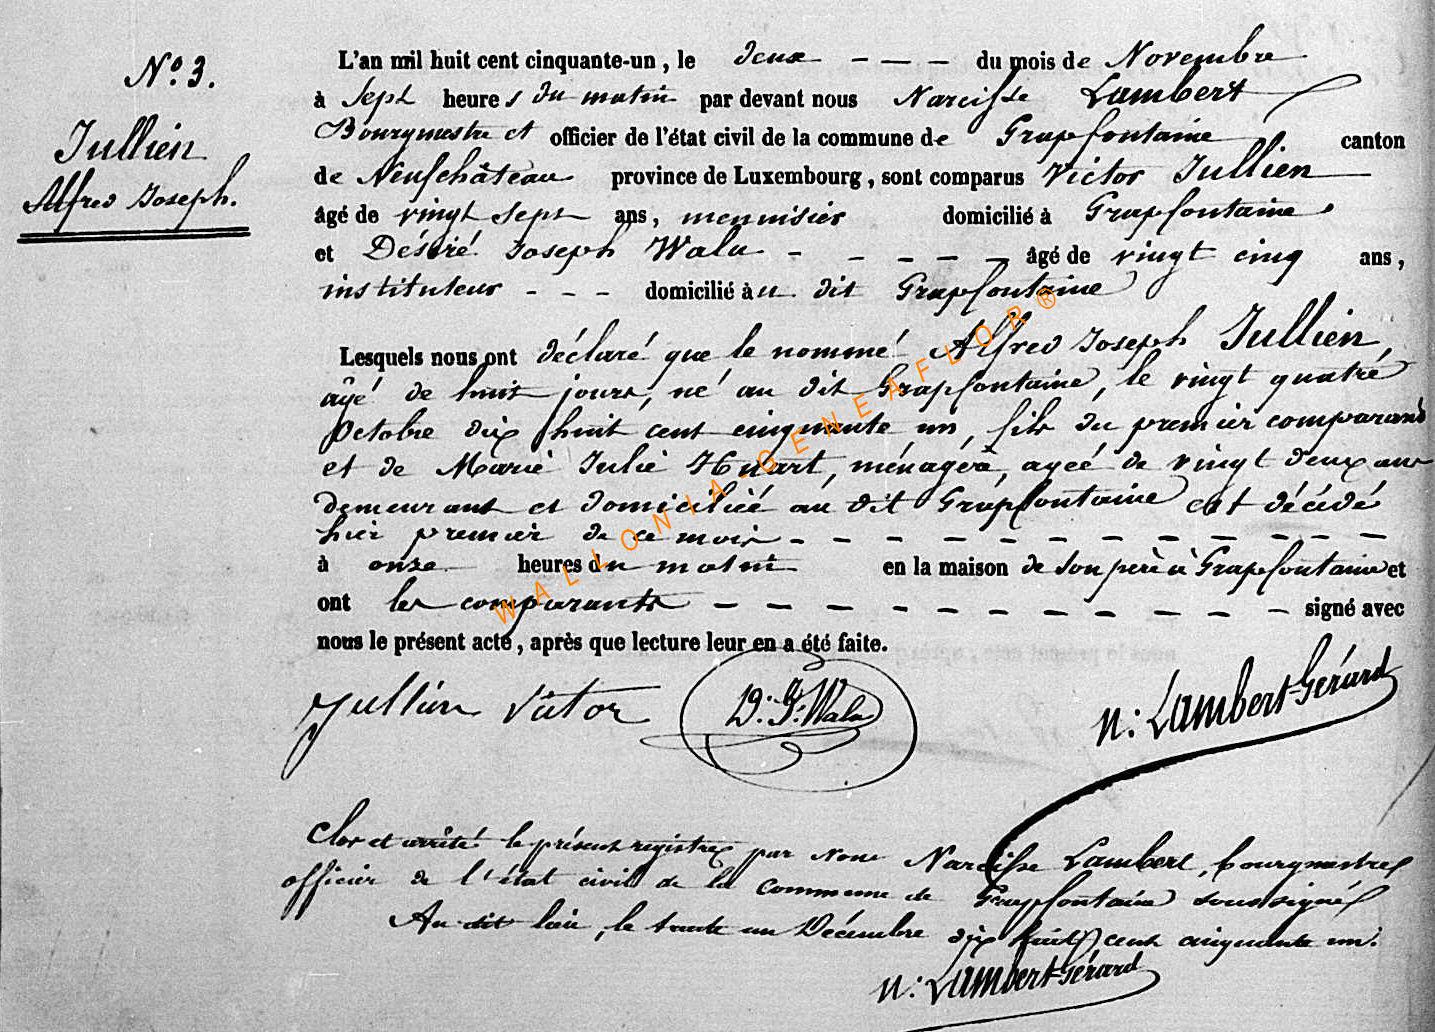 N.º 3.
Jullien
Alfred Joseph.
L'an mil huit cent cinquante-un, le deux - - - du mois de Novembre
à Sept heures du matin par devant nous Narcisse Lambert
Bourgmestre et officier de l'état civil de la commune de Grapfontaine canton
de Neufchâteau province de Luxembourg, sont comparus Victor Jullien
âgé de vingt sept ans, menuisier domicilié à Grapfontaine
et Désiré Joseph Wala - - - - - âgé de vingt cinq ans,
instituteur - - - domicilié àu dit Grapfontaine
Lesquels nous ont déclaré que le nommé Alfred Joseph Jullien,
âgé de huit jours, né au dit Grapfontaine, le vingt quatre
Octobre dix huit cent cinquante un, fils du premier comparand
et de Marie Julie Huart, ménagère, agée de vingt deux ans
demeurant et domiciliée au dit Grapfontaine est décédé
hier premier de ce mois - - - - - - - - - - - -
à onze heures du matin en la maison de son père à Grapfontaine et
ont les comparants - - - - - - - - - - - - signé avec
nous le présent acte, après que lecture leur en a été faite.
Jullien Victor D. J. Wala n: Lambert-Gérard
Clos et arrêté le présent registre par Nous Narcisse Lambert, bourgmestre
officier de l'état civil de la commune de Grapfontaine soussigné
Au dit lieu, le trente un Décembre dix huit cent cinquante un.
n: Lambert-Gérard
WALLONIA-GENEAFLOR®